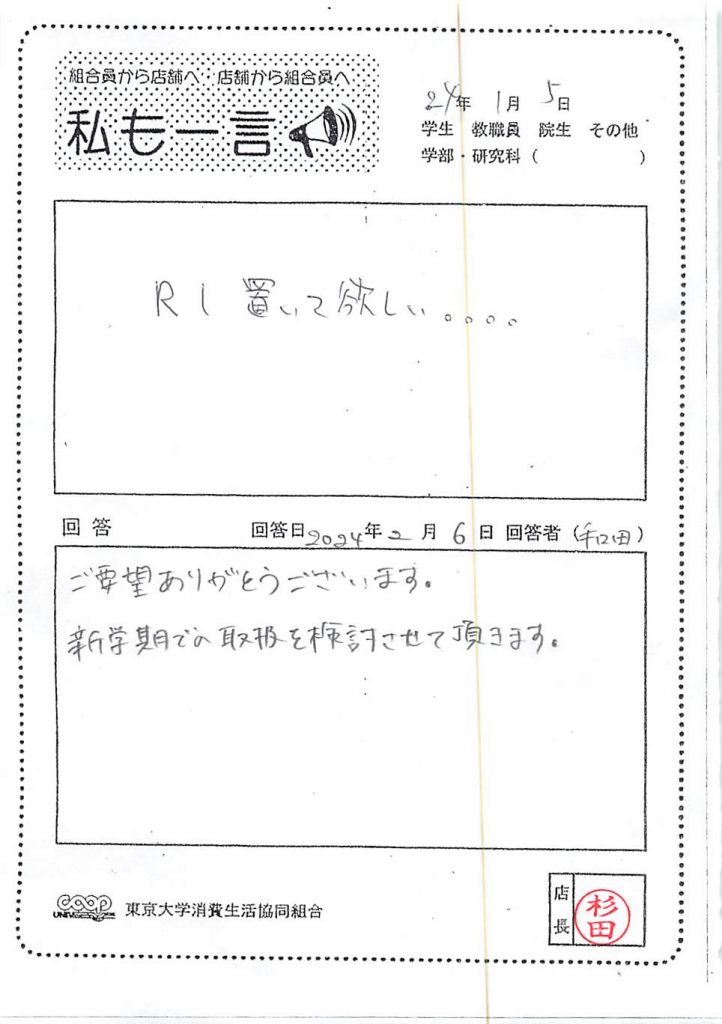 組合員から店舗へ・店舗から組合員へ
私も一言
24年 1月 5日
学生 教職員 院生 その他
学部・研究科( )
R1 置いて欲しい。。。。
回答 回答日2024年2月6日 回答者(和田)
ご要望ありがとうございます。
新学期での取扱を検討させて頂きます。
coop 東京大学消費生活協同組合
店長
杉田